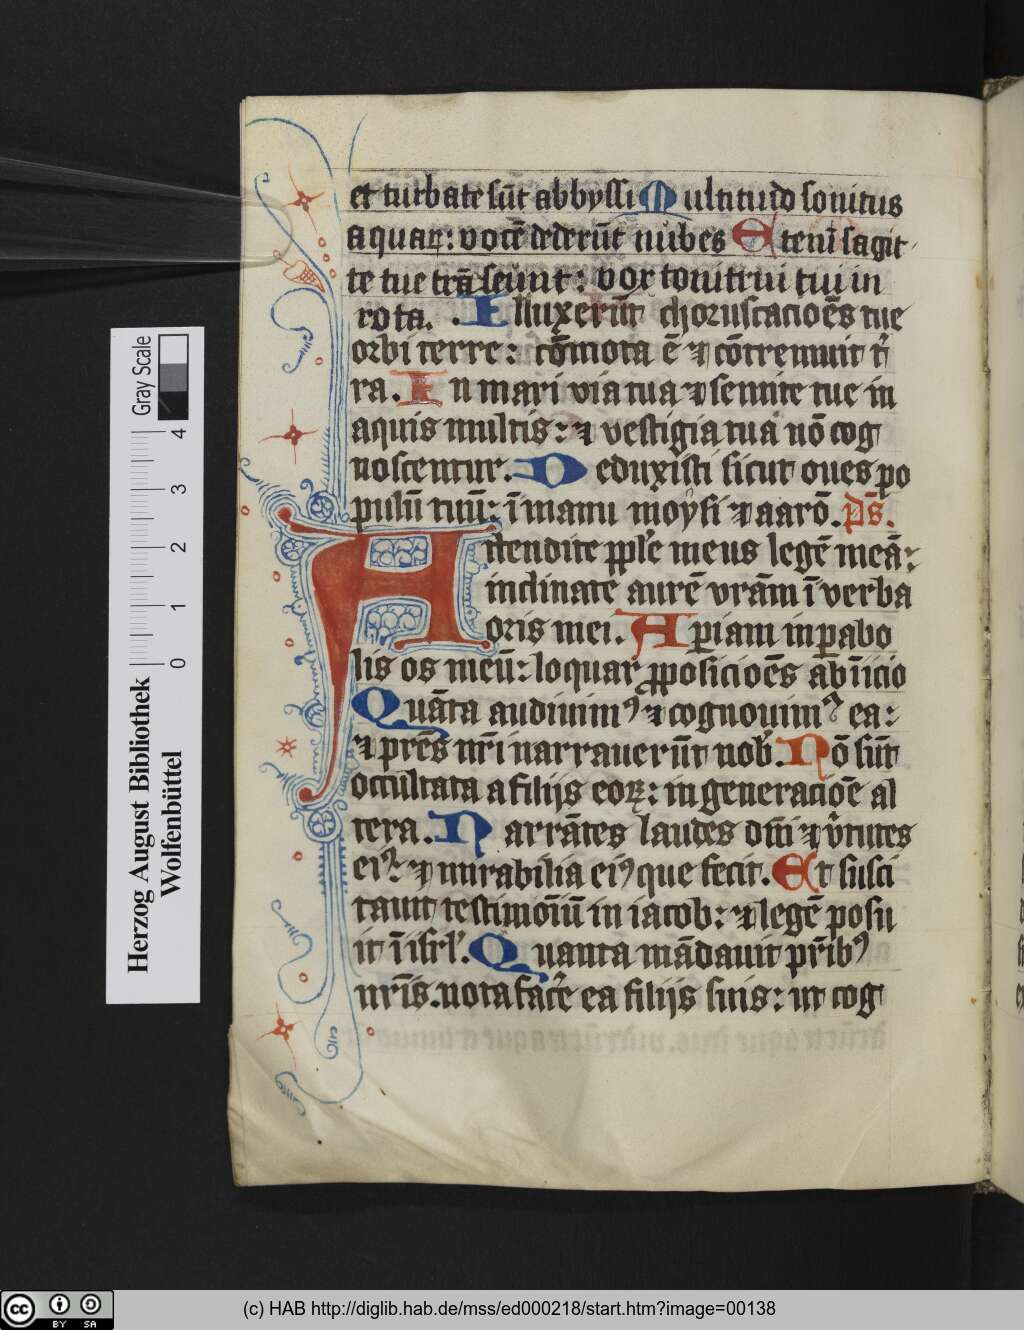 et turbate sūt abbyssi Multitudo sonitus
aquaꝝ: vocē dederūt nubes Eteni̅ sagit
te tue trāseunt: vox tonitrui tui in
rota. Illuxerūt choruscacioēs tue
orbi terre: cōmota ē ⁊ cōtremuit t̄
ra. In mari via tua ⁊ semite tue in
aquis multis: ⁊ vestigia tua nō cog
noscentur. Deduxisti sicut oues po
pulū tuū: ī manu moysi ⁊ aarō. ps̄.
Attendite pple meus legē meā:
inclinate aurē vrām ī verba
oris mei. Aꝑiam in ꝑabo
lis os meū: loquar ꝓposicioēs ab īicio
Quāta audiuimꝰ ⁊ cognouimꝰ ea:
⁊ prēs nr̄i narrauerūt nob̄. Nō sūt
occultata a filijs eoꝝ: in generacioē al
tera. Narrātes laudes dn̄i ⁊ v̄tutes
eiꝰ: ⁊ mirabilia eiꝰ que fecit. Et susci
tauit testimoīū in iacob: ⁊ legē posu
it ī isrl̄. Quanta mādauit pr̄ibꝰ
nr̄is. nota facē ea filijs suis: ut cog
Gray Scale
4
3
2
1
0
Herzog August Bibliothek
Wolfenbüttel
cc BY SA
(c) HAB http://diglib.hab.de/mss/ed000218/start.htm?image=00138